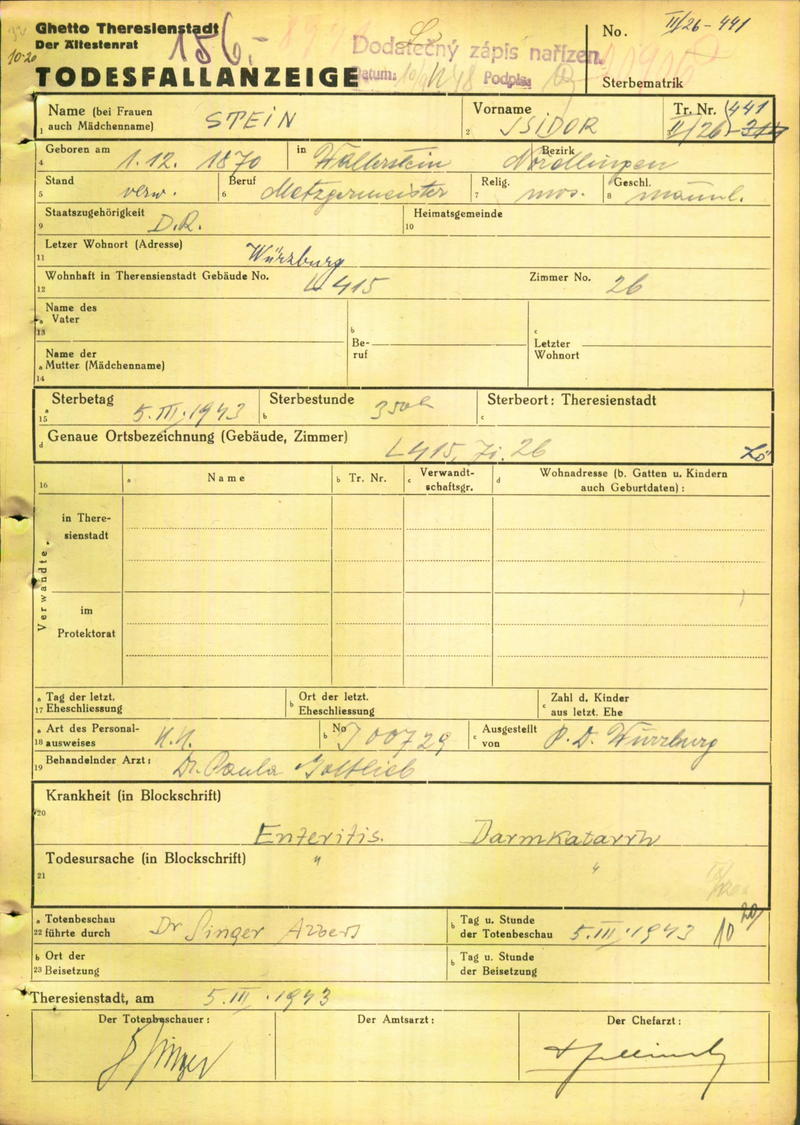 Ghetto Theresienstadt
Der Ältestenrat
TODESFALLANZEIGE
156.-
Dodatečný zápis nařízen.
Datum: Podpis:
No. II/26-441
Sterbematrik
Name (bei Frauen auch Mädchenname) STEIN
1
Vorname ISIDOR
2
Tr. Nr. 441
3 II/26-
Geboren am 1.12. 1870 in Wallerstein Bezirk Nördlingen
4
Stand verw. Beruf Metzgermeister Relig. mos. Geschl. männl.
5 6 7 8
Staatszugehörigkeit D.R. Heimatsgemeinde
9 10
Letzer Wohnort (Adresse) Würzburg
11
Wohnhaft in Therensienstadt Gebäude No. L 415 Zimmer No. 26
12
Name des
a Vater
13
b Be-
ruf
c Letzter
Wohnort
Name der
a Mutter (Mädchenname)
14
a Sterbetag 5.III.1943 b Sterbestunde 350h c Sterbeort: Theresienstadt
15
d Genaue Ortsbezeichnung (Gebäude, Zimmer) L 415, Zi. 26
16 a Name b Tr. Nr. c Verwandt-
schaftsgr. d Wohnadresse (b. Gatten u. Kindern
auch Geburtdaten):
Verwandte
in There-
sienstadt
im
Protektorat
a Tag der letzt.
17 Eheschliessung
b Ort der letzt.
Eheschliessung
c Zahl d. Kinder
aus letzt. Ehe
a Art des Personal-
18 ausweises K.K. b No J 00729 c Ausgestellt
von P.D. Würzburg
19 Behandelnder Arzt: Dr. Paula Gottlieb
Krankheit (in Blockschrift)
20
Enteritis. Darmkatarrh
Todesursache (in Blockschrift) " "
21
a Totenbeschau
22 führte durch Dr Singer Albert
b Tag u. Stunde
der Totenbeschau 5.III.1943 10 20/
b Ort der
23 Beisetzung
b Tag u. Stunde
der Beisetzung
Theresienstadt, am 5.III.1943
Der Totenbeschauer: Der Amtsarzt: Der Chefarzt:
Singer